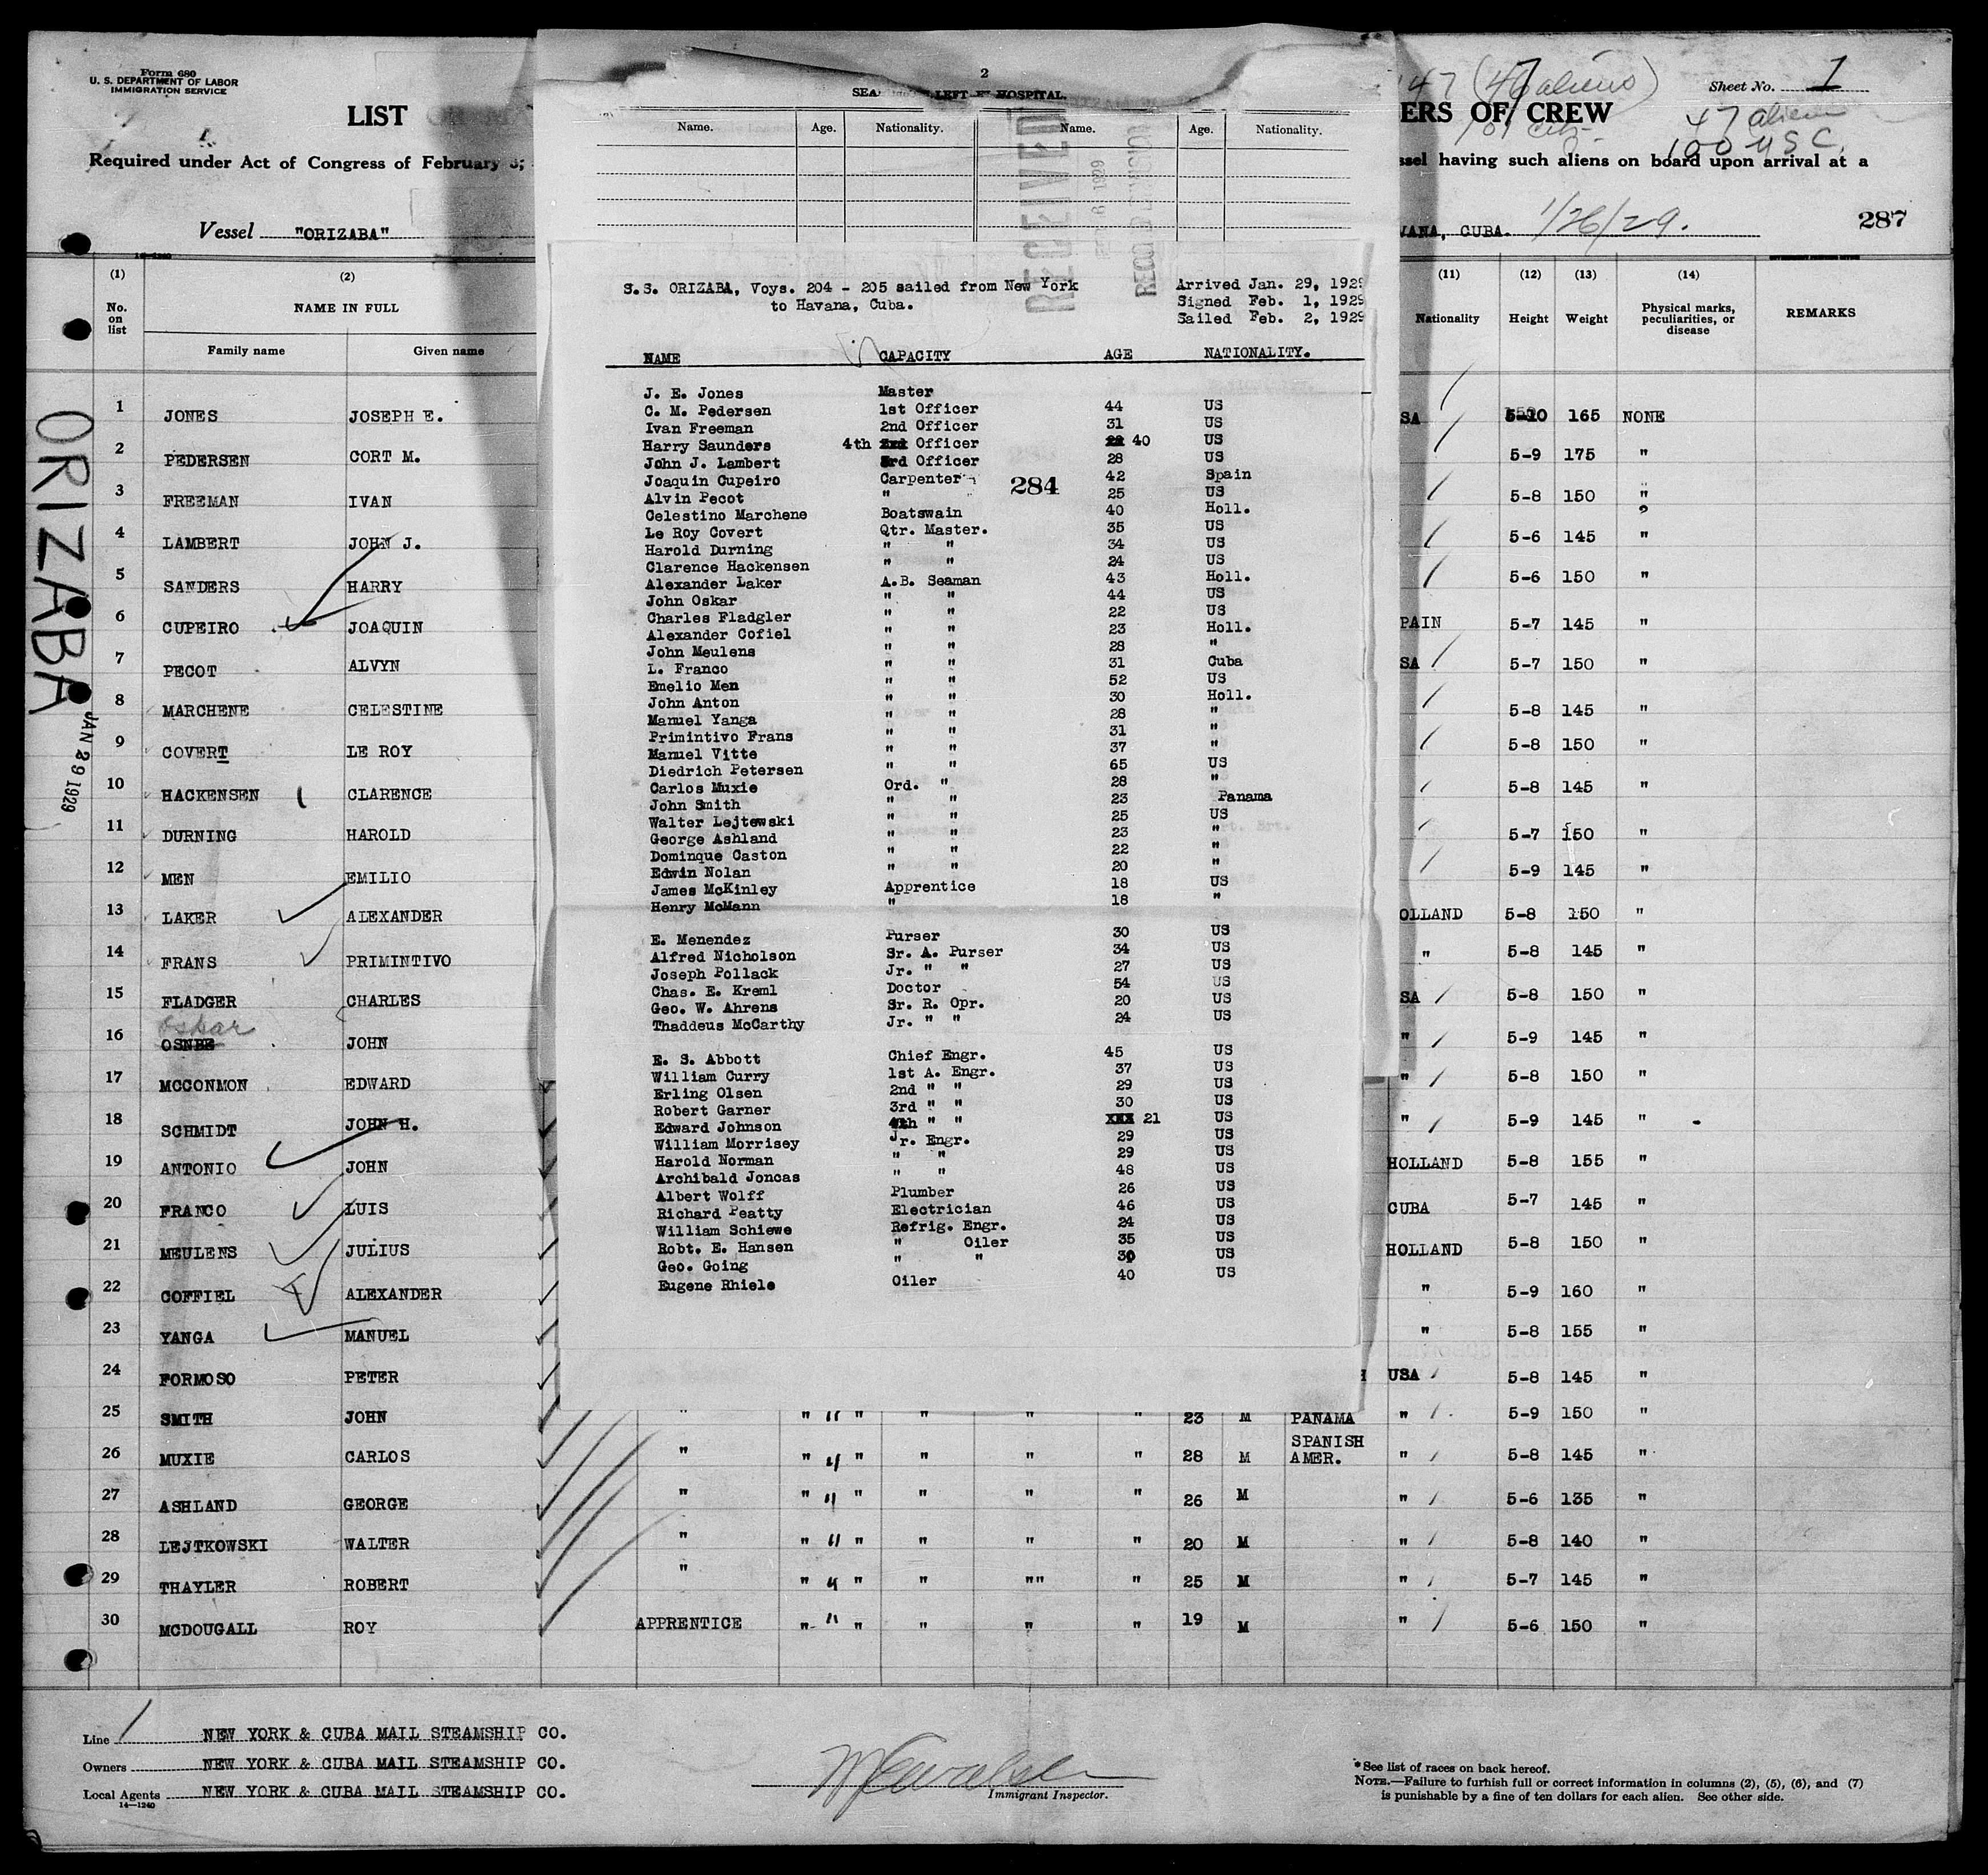 Form 680
U. S. DEPARTMENT OF LABOR
IMMIGRATION SERVICE
LIST
Required under Act of Congress of February 5;
Vessel "ORIZABA"
14-1240
(1) (2)
No. on list
NAME IN FULL
Family name Given name
1 JONES JOSEPH E.
2 PEDERSEN CORT M.
3 FREEMAN IVAN
4 LAMBERT JOHN J.
5 SANDERS HARRY
6 CUPEIRO JOAQUIN
7 PECOT ALVYN
8 MARCHENE CELESTINE
9 COVERT LE ROY
10 HACKENSEN CLARENCE
11 DURNING HAROLD
12 MEN EMILIO
13 LAKER ALEXANDER
14 FRANS PRIMINTIVO
15 FLADGER CHARLES
Oskar
16 OSNBE JOHN
17 MCCONMON EDWARD
18 SCHMIDT JOHN H.
19 ANTONIO JOHN
20 FRANCO LUIS
21 MEULENS JULIUS
22 COFFIEL ALEXANDER
23 YANGA MANUEL
24 FORMOSO PETER
25 SMITH JOHN
26 MUXIE CARLOS
27 ASHLAND GEORGE
28 LEJTKOWSKI WALTER
29 THAYLER ROBERT
30 MCDOUGALL ROY
ORIZABA
JAN 29 1929
2
SEA LEFT HOSPITAL.
Name. Age. Nationality. Name. Age. Nationality.
RECEIVED
1929
S.S. ORIZABA, Voys. 204 - 205 sailed from New York
to Havana, Cuba.
Arrived Jan. 29, 1929
Signed Feb. 1, 1929
Sailed Feb. 2, 1929
NAME CAPACITY AGE NATIONALITY.
J. E. Jones Master
C. M. Pedersen 1st Officer 44 US
Ivan Freeman 2nd Officer 31 US
Harry Saunders 4th Officer 40 US
John J. Lambert 3rd Officer 28 US
Joaquin Cupeiro Carpenter 42 Spain
284
Alvin Pecot " 25 US
Celestino Marchene Boatswain 40 Holl.
Le Roy Covert Qtr. Master. 35 US
Harold Durning " " 34 US
Clarence Hackensen " " 24 US
Alexander Laker A.B. Seaman 43 Holl.
John Oskar " " 44 US
Charles Fladgler " " 22 US
Alexander Cofiel " " 23 Holl.
John Meulens " " 28 "
L. Franco " " 31 Cuba
Emelio Men " " 52 US
John Anton " " 30 Holl.
Manuel Yanga " " 28 "
Primintivo Frans " " 31 "
Manuel Vitte " " 37 "
Diedrich Petersen " " 65 US
Carlos Muxie Ord. " 28 "
John Smith " " 23 Panama
Walter Lejtewski " " 25 US
George Ashland " " 23 "
Dominque Caston " " 22 "
Edwin Nolan " " 20 "
James McKinley Apprentice 18 US
Henry McMann " 18 "
E. Menendez Purser 30 US
Alfred Nicholson Sr. A. Purser 34 US
Joseph Pollack Jr. " " 27 US
Chas. E. Kreml Doctor 54 US
Geo. W. Ahrens Sr. R. Opr. 20 US
Thaddeus McCarthy Jr. " " 24 US
E. S. Abbott Chief Engr. 45 US
William Curry 1st A. Engr. 37 US
Erling Olsen 2nd " " 29 US
Robert Garner 3rd " " 30 US
Edward Johnson 4th " " XXX 21 US
William Morrisey Jr. Engr. 29 US
Harold Norman " " 29 US
Archibald Joncas " " 48 US
Albert Wolff Plumber 26 US
Richard Peatty Electrician 46 US
William Schiewe Refrig. Engr. 24 US
Robt. E. Hansen " Oiler 35 US
Geo. Going " " 30 US
Eugene Rhiele Oiler 40 US
47 (47 aliens)
101 cit.
Sheet No. 1
ERS OF CREW
47 aliens
100 USC.
ssel having such aliens on board upon arrival at a
VANA, CUBA. 1/26/29.
287
(11) (12) (13) (14)
Nationality Height Weight Physical marks, peculiarities, or disease REMARKS
SA 5-10 165 NONE
5-9 175 "
5-8 150 "
?
5-6 145 "
5-6 150 "
PAIN 5-7 145 "
SA 5-7 150 "
5-8 145 "
5-8 150 "
5-8 145 "
5-7 150 "
5-9 145 "
OLLAND 5-8 150 "
" 5-8 145 "
SA 5-8 150 "
" 5-9 145 "
" 5-8 150 "
" 5-9 145 "
HOLLAND 5-8 155 "
CUBA 5-7 145 "
HOLLAND 5-8 150 "
" 5-9 160 "
" 5-8 155 "
H USA 5-8 145 "
" " 11 " " " " 23 M PANAMA " 5-9 150 "
" " 11 " " " " 28 M SPANISH AMER. " 5-8 145 "
" " 11 " " " " 26 M " 5-6 135 "
" " 11 " " " " 20 M " 5-8 140 "
" " 11 " " "" " 25 M " 5-7 145 "
APPRENTICE " 11 " " " " 19 M " 5-6 150 "
Line NEW YORK & CUBA MAIL STEAMSHIP CO.
Owners NEW YORK & CUBA MAIL STEAMSHIP CO.
Local Agents NEW YORK & CUBA MAIL STEAMSHIP CO.
14-1240
Immigrant Inspector.
* See list of races on back hereof.
NOTE.—Failure to furnish full or correct information in columns (2), (5), (6), and (7)
is punishable by a fine of ten dollars for each alien. See other side.